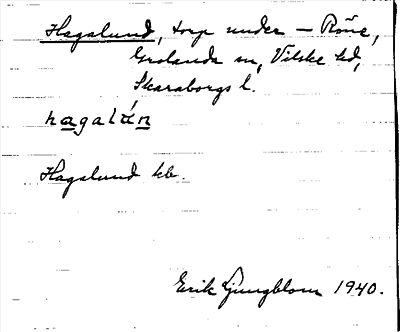 Hagalund, torp under — Röne,
Grolanda sn, Vilske hd,
Skaraborgs l.
hagalún
Hagalund kb.
Erik Ljungblom 1940.